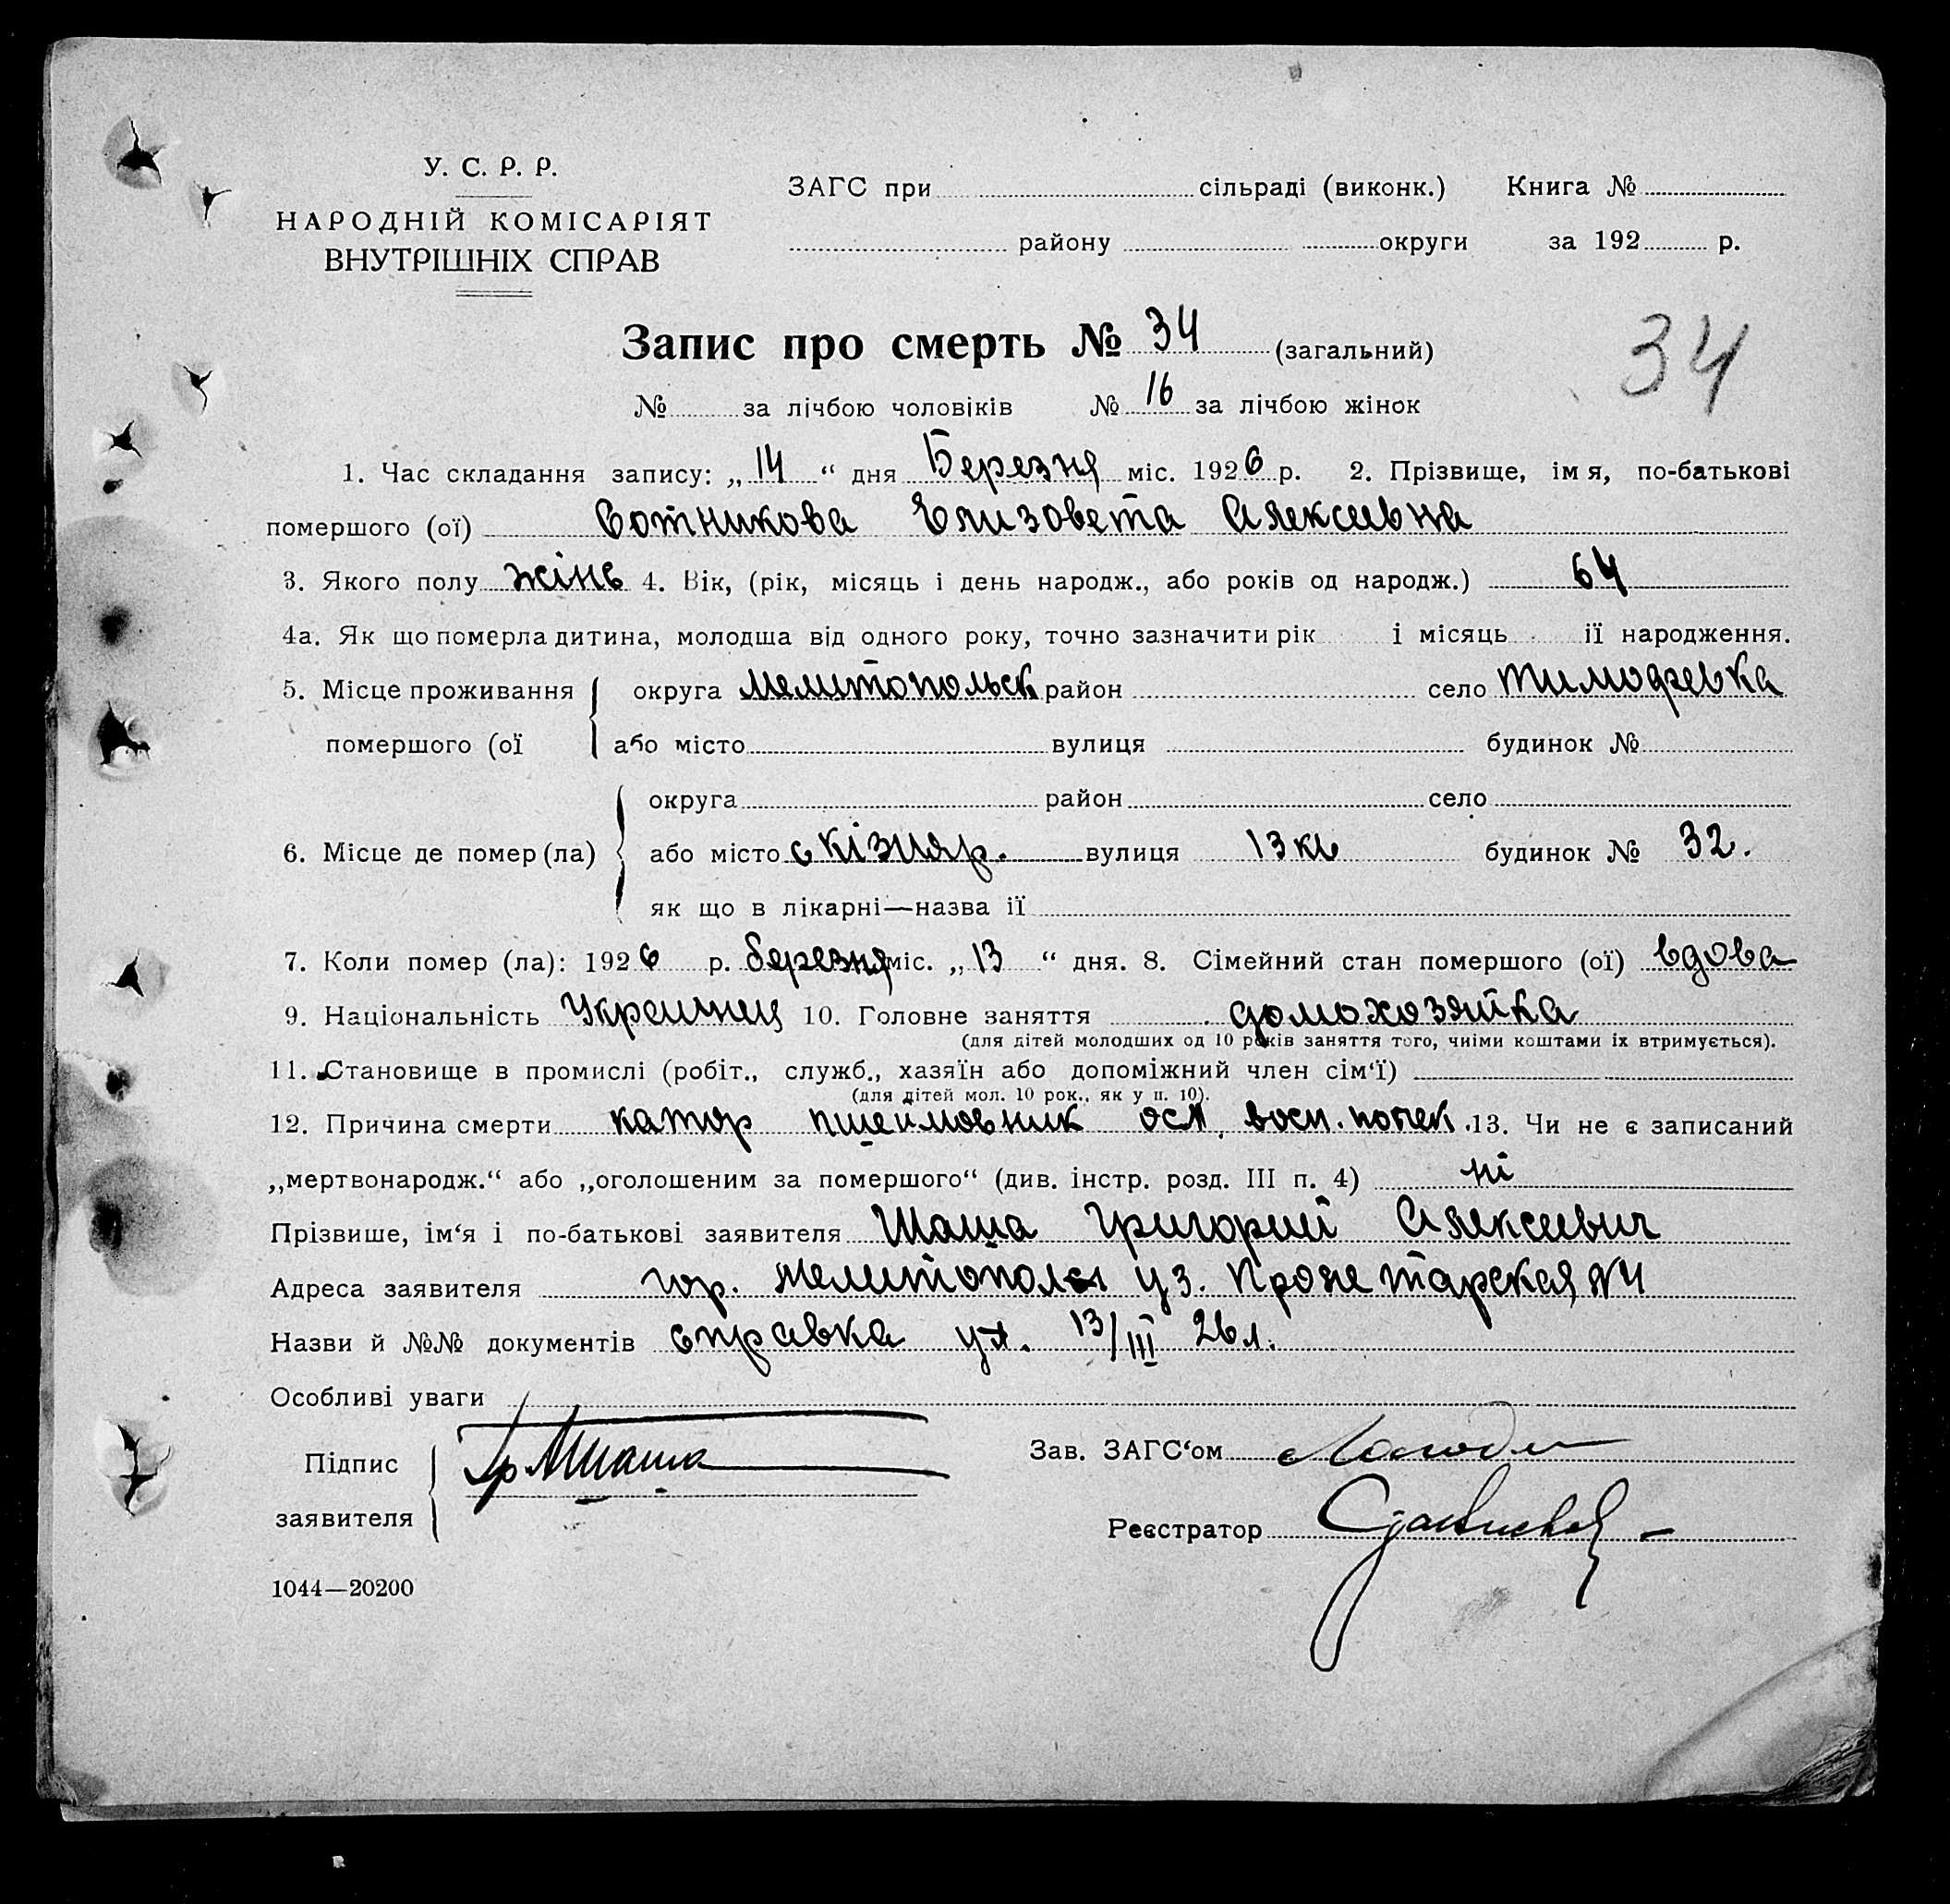 У. С. Р. Р.
НАРОДНІЙ КОМІСАРІЯТ
ВНУТРІШНІХ СПРАВ
ЗАГС при сільраді (виконк.) Книга №
району округи за 192 р.
Запис про смерть № 34 (загальний)
34
№ за лічбою чоловіків № 16 за лічбою жінок
1. Час складання запису: „ 14 “ дня Березня міс. 1926 р. 2. Прізвище, імя, по-батькові
помершого (ої) Сотникова Елизовета Алексеевна
3. Якого полу жінв 4. Вік, (рік, місяць і день народж., або років од народж.) 64
4а. Як що померла дитина, молодша від одного року, точно зазначити рік і місяць ії народження.
5. Місце проживання округа мелитопольск район село тимофевка
помершого (ої або місто вулиця будинок №
округа район село
6. Місце де помер (ла) або місто с кізияр. вулиця 13 кв будинок № 32.
як що в лікарні—назва ії
7. Коли помер (ла): 1926 р. березня міс. „ 13 “ дня. 8. Сімейний стан помершого (ої) вдова
9. Національність Украинец 10. Головне заняття домохозяйка
(для дітей молодших од 10 років заняття того, чиїми коштами їх втримується).
11. Становище в промислі (робіт., служб., хазяїн або допоміжний член сім‘ї)
(для дітей мол. 10 рок., як у п. 10).
12. Причина смерти восп. почек 13. Чи не є записаний
„мертвонародж.“ або „оголошеним за помершого“ (див. інстр. розд. III п. 4) ні
Прізвише, ім‘я і по-батькові заявителя Шаша Григорий Алексеевич
Адреса заявителя гор. Мелитополь уз. Пролетарская №4
Назви й №№ документів справка 13/III 26
Особливі уваги
Підпис Гр АШаша Зав. ЗАГС‘ом
заявителя
Реєстратор
1044—20200